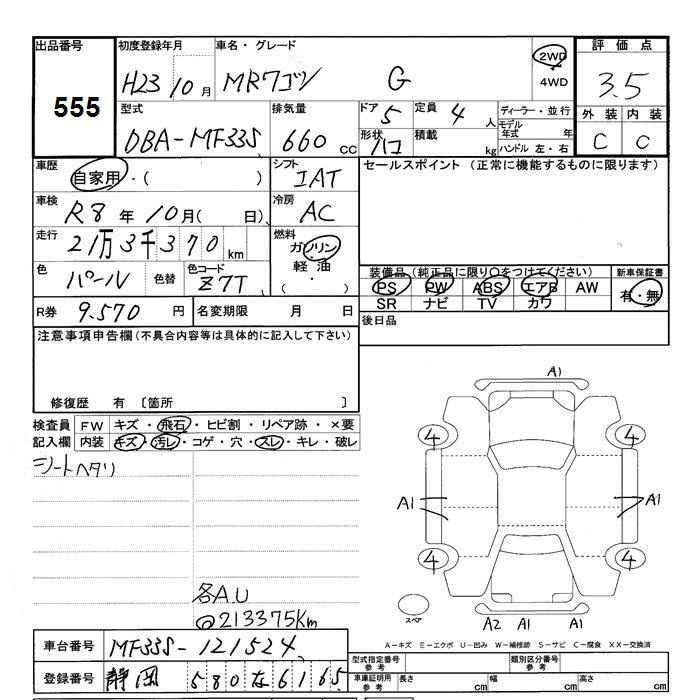 出品番号 初度登録年月 車名・グレード 評価点
555
H23 10月 MRワゴン G 2WD 4WD 3.5
型式 排気量 ドア 定員 ディーラー・並行 外装 内装
DBA-MF33S 660cc 5 4人 モデル年式 年 C C
形状 ハコ 積載 kg ハンドル 左・右
車歴 シフト セールスポイント (正常に機能するものに限ります)
自家用・( ) IAT
車検 冷房
R8年10月( 日) AC
走行 燃料
21万3千370km ガソリン
軽油
・( )
色 色替 色コード
パール Z7T
装備品(純正品に限り○をつけてください) 新車保証書
PS PW ABS エアB AW 有・無
SR ナビ TV カワ
R券 9.570円 名変期限 月 日
後日品
注意事項申告欄(不具合内容等は具体的に記入して下さい)
修復歴 有 〔箇所 〕
検査員 FW キズ・飛石・ヒビ割・リペア跡・×要
記入欄 内装 キズ・汚レ・コゲ・穴・スレ・キレ・破レ
シートヘタリ
A1
4 4
A1 A1
4 4
各A.U
@213375Km
スペア A2 A1 A1
A-キズ E-エクボ U-凹み W-補修跡 S-サビ C-腐食 XX-交換済
車台番号 MF33S-121524
型式指定番号 参考 類別区分番号 参考
登録番号 静岡 580 な 6165
車庫証明用 参考 長さ cm 幅 cm 高さ cm